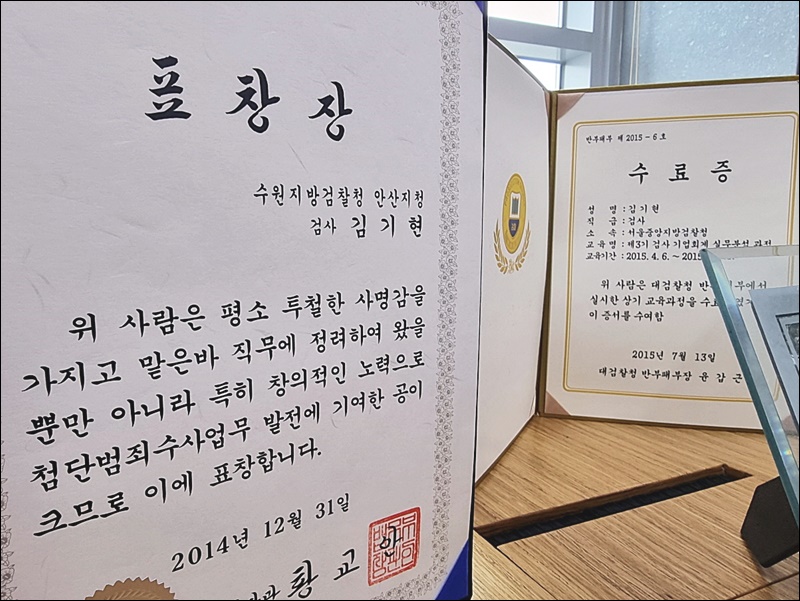 표창장
수원지방검찰청 안산지청
검사 김기현
위 사람은 평소 투철한 사명감을
가지고 맡은바 직무에 정려하여 왔을
뿐만 아니라 특히 창의적인 노력으로
첨단범죄수사업무 발전에 기여한 공이
크므로 이에 표창합니다.
2014년 12월 31일
황교안
반부패부 제 2015-6호
수료증
성 명 : 김기현
직 급 : 검사
소 속 : 서울중앙지방검찰청
교 육 명 : 제3기 검사 기업회계 실무분석 과정
교육기간 : 2015. 4. 6. ~ 2015.
위 사람은 대검찰청 반부패부에서
실시한 상기 교육과정을 수료
이 증서를 수여함
2015년 7월 13일
대검찰청 반부패부장 윤갑근